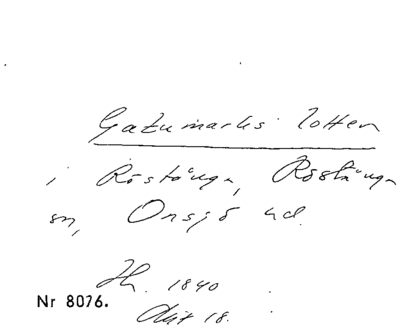 Gatumarks lotten
i Röstånga, Röstånga
sn, Onsjö hd.
1840
Nr 8076.
Akt 18.